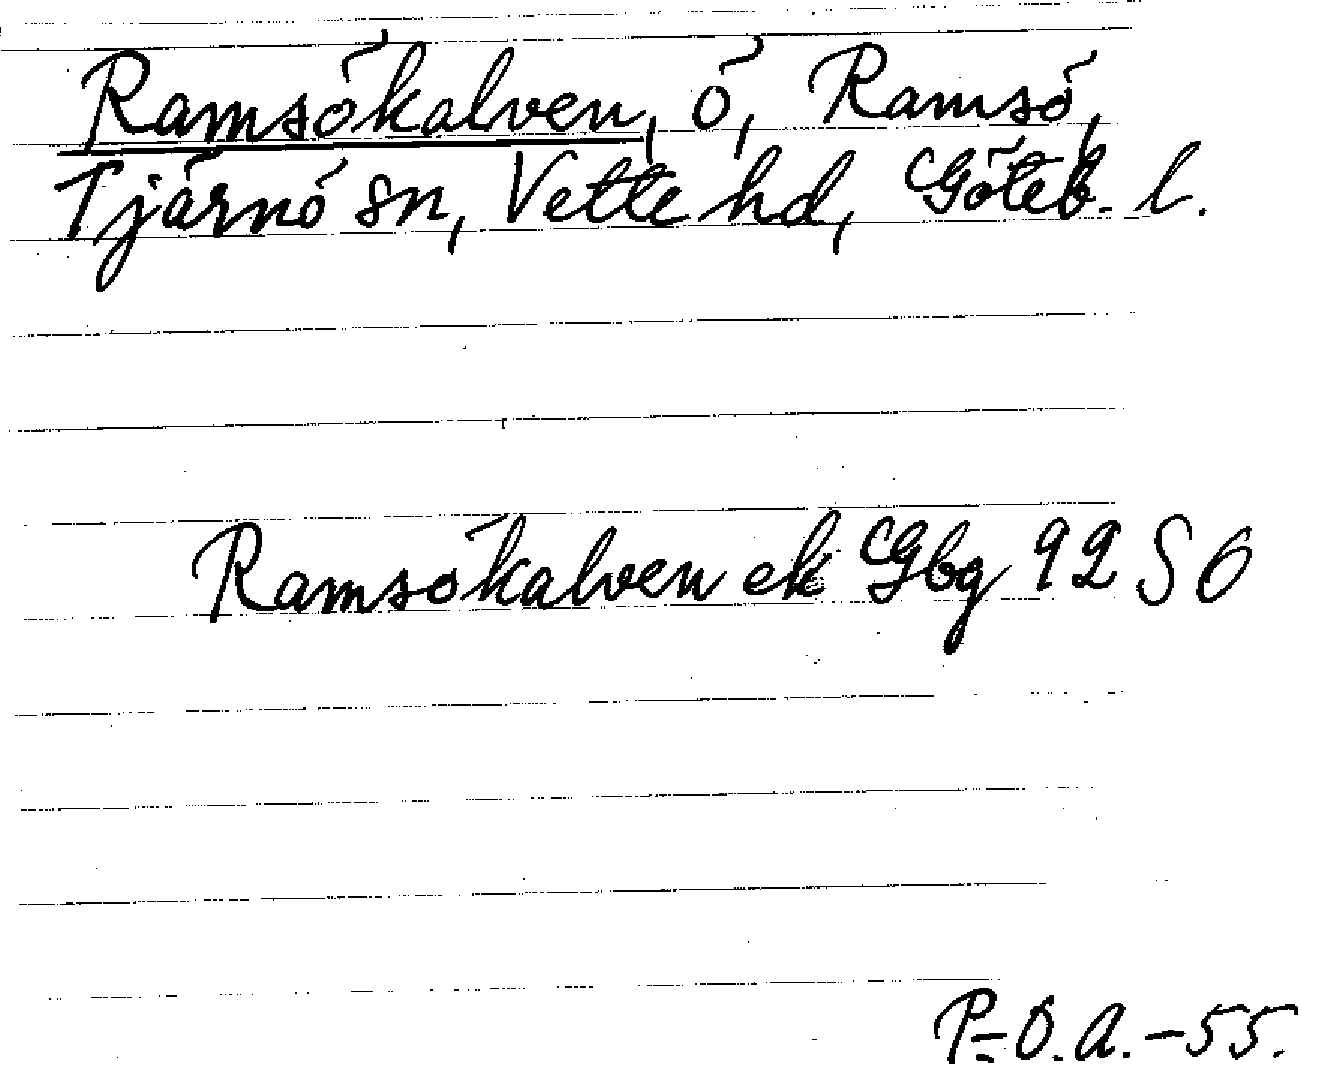 Ramsökalven, ö, Ramsö,
Tjärnö sn, Vette hd, Göteb. l.
Ramsökalven ek Gbg 92 SO
P-O.A.-55.